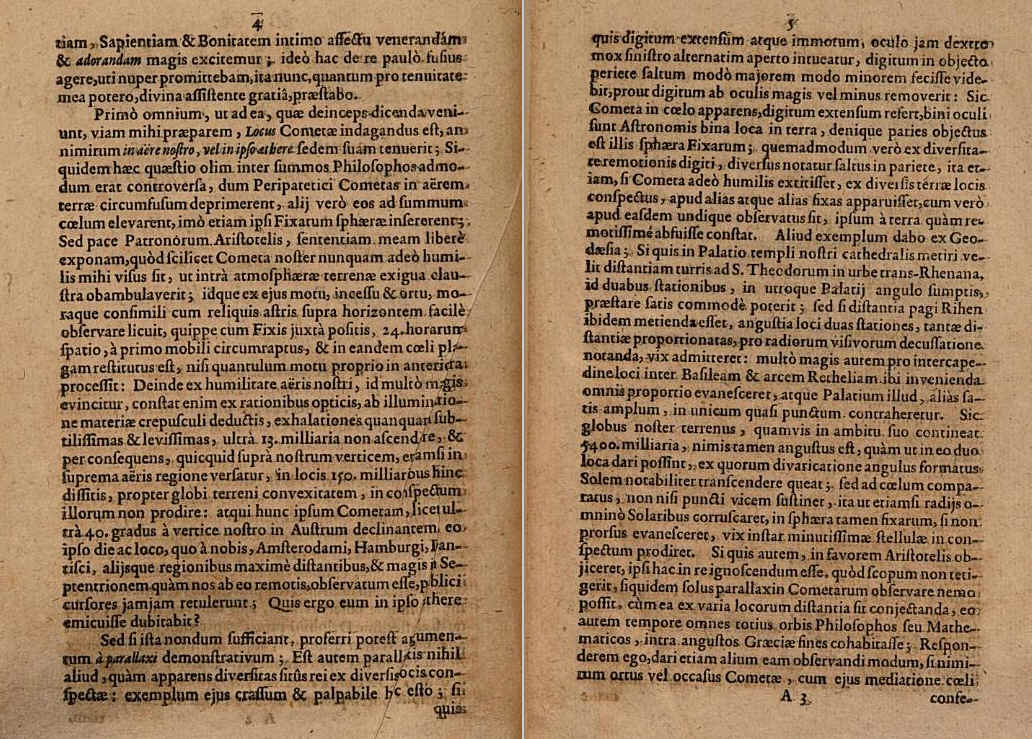 4
tiam, Sapientiam & Bonitatem intimo affectu venerandam
& adorandam magis excitemur; ideò hac de re paulò fusius
agere, uti nuper promittebam, ita nunc, quantum pro tenuitate
mea potero, divina assistente gratiâ, præstabo.
Primò omnium, ut ad ea, quæ deinceps dicenda veni-
unt, viam mihi præparem, Locus Cometæ indagandus est, an
nimirum in aëre nostro, vel in ipso æthere sedem suam tenuerit; Si-
quidem hæc quæstio olim inter summos Philosophos admo-
dum erat controversa, dum Peripatetici Cometas in aërem
terræ circumfusum deprimerent, alij verò eos ad summum
cœlum elevarent, imò etiam ipsi Fixarum sphæræ insererent;
Sed pace Patronorum Aristotelis, sententiam meam liberè
exponam, quòd scilicet Cometa noster nunquam adeò humi-
lis mihi visus sit, ut intrà atmosphæræ terrenæ exigua clau-
stra obambulaverit; idque ex ejus motu, incessu & ortu, mo-
raque consimili cum reliquis astris supra horizontem facilè
observare licuit, quippe cum Fixis juxtà positis, 24. horarum
spatio, à primo mobili circumraptus, & in eandem cœli pla-
gam restitutus est, nisi quantulum motu proprio in anteriora
processit: Deinde ex humilitate aëris nostri, id multò magis
evincitur, constat enim ex rationibus opticis, ab illuminatio-
ne materiæ crepusculi deductis, exhalationes quanquam sub-
tilissimas & levissimas, ultrà 13. milliaria non ascendere, &
per consequens, quicquid suprà nostrum verticem, etiamsi in
suprema aëris regione versatur, in locis 150. milliaribus hinc
dissitis, propter globi terreni convexitatem, in conspectum
illorum non prodire: atqui hunc ipsum Cometam, licet ul-
trà 40. gradus à vertice nostro in Austrum declinantem, eo
ipso die ac loco, quo à nobis, Amsterodami, Hamburgi, Dan-
tisci, alijsque regionibus maximè distantibus, & magis in Se-
ptentrionem quàm nos ab eo remotis, observatum esse, publici
cursores jamjam retulerunt; Quis ergo eum in ipso æthere
emicuisse dubitabit?
Sed si ista nondum sufficiant, proferri potest argumen-
tum à parallaxi demonstrativum; Est autem parallaxis nihil
aliud, quàm apparens diversitas sitûs rei ex diversis locis con-
spectæ: exemplum ejus crassum & palpabile hoc esto; si
quis
5
quis digitum extensum atque immotum, oculo jam dextro
mox sinistro alternatim aperto intueatur, digitum in objecto
pariete saltum modò majorem modo minorem fecisse vide-
bit, prout digitum ab oculis magis vel minus removerit: Sic
Cometa in cœlo apparens, digitum extensum refert, bini oculi
sunt Astronomis bina loca in terra, denique paries objectus
est illis sphæra Fixarum; quemadmodum verò ex diversita-
te remotionis digiti, diversus notatur saltus in pariete, ita et-
iam, si Cometa adeò humilis extitisset, ex diversis terræ locis
conspectus, apud alias atque alias fixas apparuisset, cum verò
apud easdem undique observatus sit, ipsum à terra quàm re-
motissimè abfuisse constat. Aliud exemplum dabo ex Geo-
dæsia; Si quis in Palatio templi nostri cathedralis metiri ve-
lit distantiam turris ad S. Theodorum in urbe trans-Rhenana,
id duabus stationibus, in utroque Palatij angulo sumptis,
præstare satis commodè poterit; sed si distantia pagi Rihen
ibidem metienda esset, angustia loci duas stationes, tantæ di-
stantiæ proportionatas, pro radiorum visivorum decussatione
notanda, vix admitteret: multò magis autem pro intercape-
dine loci inter Basileam & arcem Retheliam ibi invenienda
omnis proportio evanesceret, atque Palatium illud, alias sa-
tis amplum, in unicum quasi punctum contraheretur. Sic
globus noster terrenus, quamvis in ambitu suo contineat
5400. milliaria, nimis tamen angustus est, quàm ut in eo duo
loca dari possint, ex quorum divaricatione angulus formatus
Solem notabiliter transcendere queat; sed ad cœlum compa-
ratus, non nisi puncti vicem sustinet, ita ut etiamsi radijs o-
mninò Solaribus corruscaret, in sphæra tamen fixarum, si non
prorsus evanesceret, vix instar minutissimæ stellulæ in con-
spectum prodiret. Si quis autem, in favorem Aristotelis ob-
jiceret, ipsi hac in re ignoscendum esse, quòd scopum non teti-
gerit, siquidem solus parallaxin Cometarum observare nemo
possit, cùm ea ex varia locorum distantia sit conjectanda, eo
autem tempore omnes totius orbis Philosophos seu Mathe-
maticos, intra angustos Græciæ fines cohabitasse; Respon-
derem ego, dari etiam alium eam observandi modum, si nimi-
rum ortus vel occasus Cometæ, cum ejus mediatione cœli
A 3 confe-